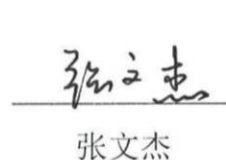 张文杰
张文杰